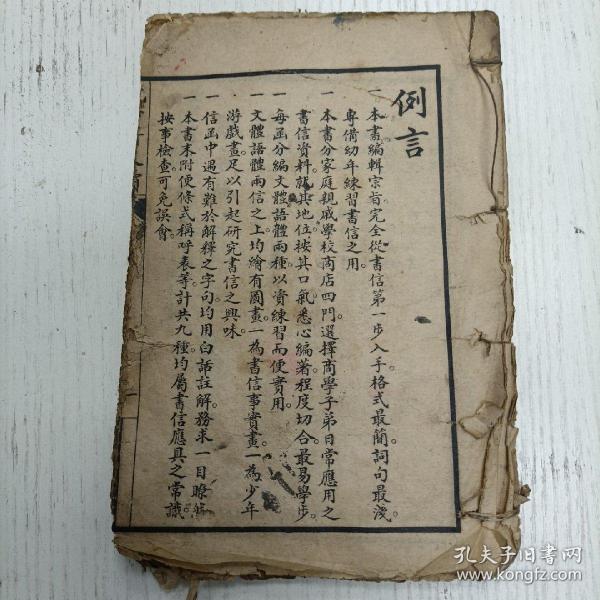 例言
一本書編輯宗旨完全從書信第一步入手格式最簡詞句最淺。
專備幼年練習書信之用。
一本書分家庭親戚學校商店四門選擇商學子弟日常應用之
書信資料。就其地位按其口氣悉心編著程度切合最易學步。
一每函分編文體語體兩種以資練習而便實用。
一文體語體兩信之上均繪有圖畫一為書信事實畫一為少年
游戲畫足以引起研究書信之興味。
一信函中遇有難於解釋之字句均用白話註解務求一目瞭然
一本書末附便條式稱呼表等計共九種均屬書信應具之常識。
按事檢查可免誤會。
孔夫子旧书网
www.kongfz.com